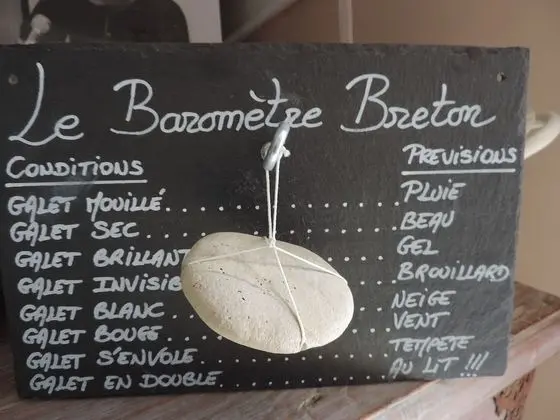 Le Baromètre Breton
CONDITIONS PREVISIONS
GALET MOUILLÉ............ PLUIE
GALET SEC............ BEAU
GALET BRILLANT............ GEL
GALET INVISIB............ BROUILLARD
GALET BLANC............ NEIGE
GALET BOUGE............ VENT
GALET S'ENVOLE............ TEMPETE
GALET EN DOUBLE............ AU LIT !!!